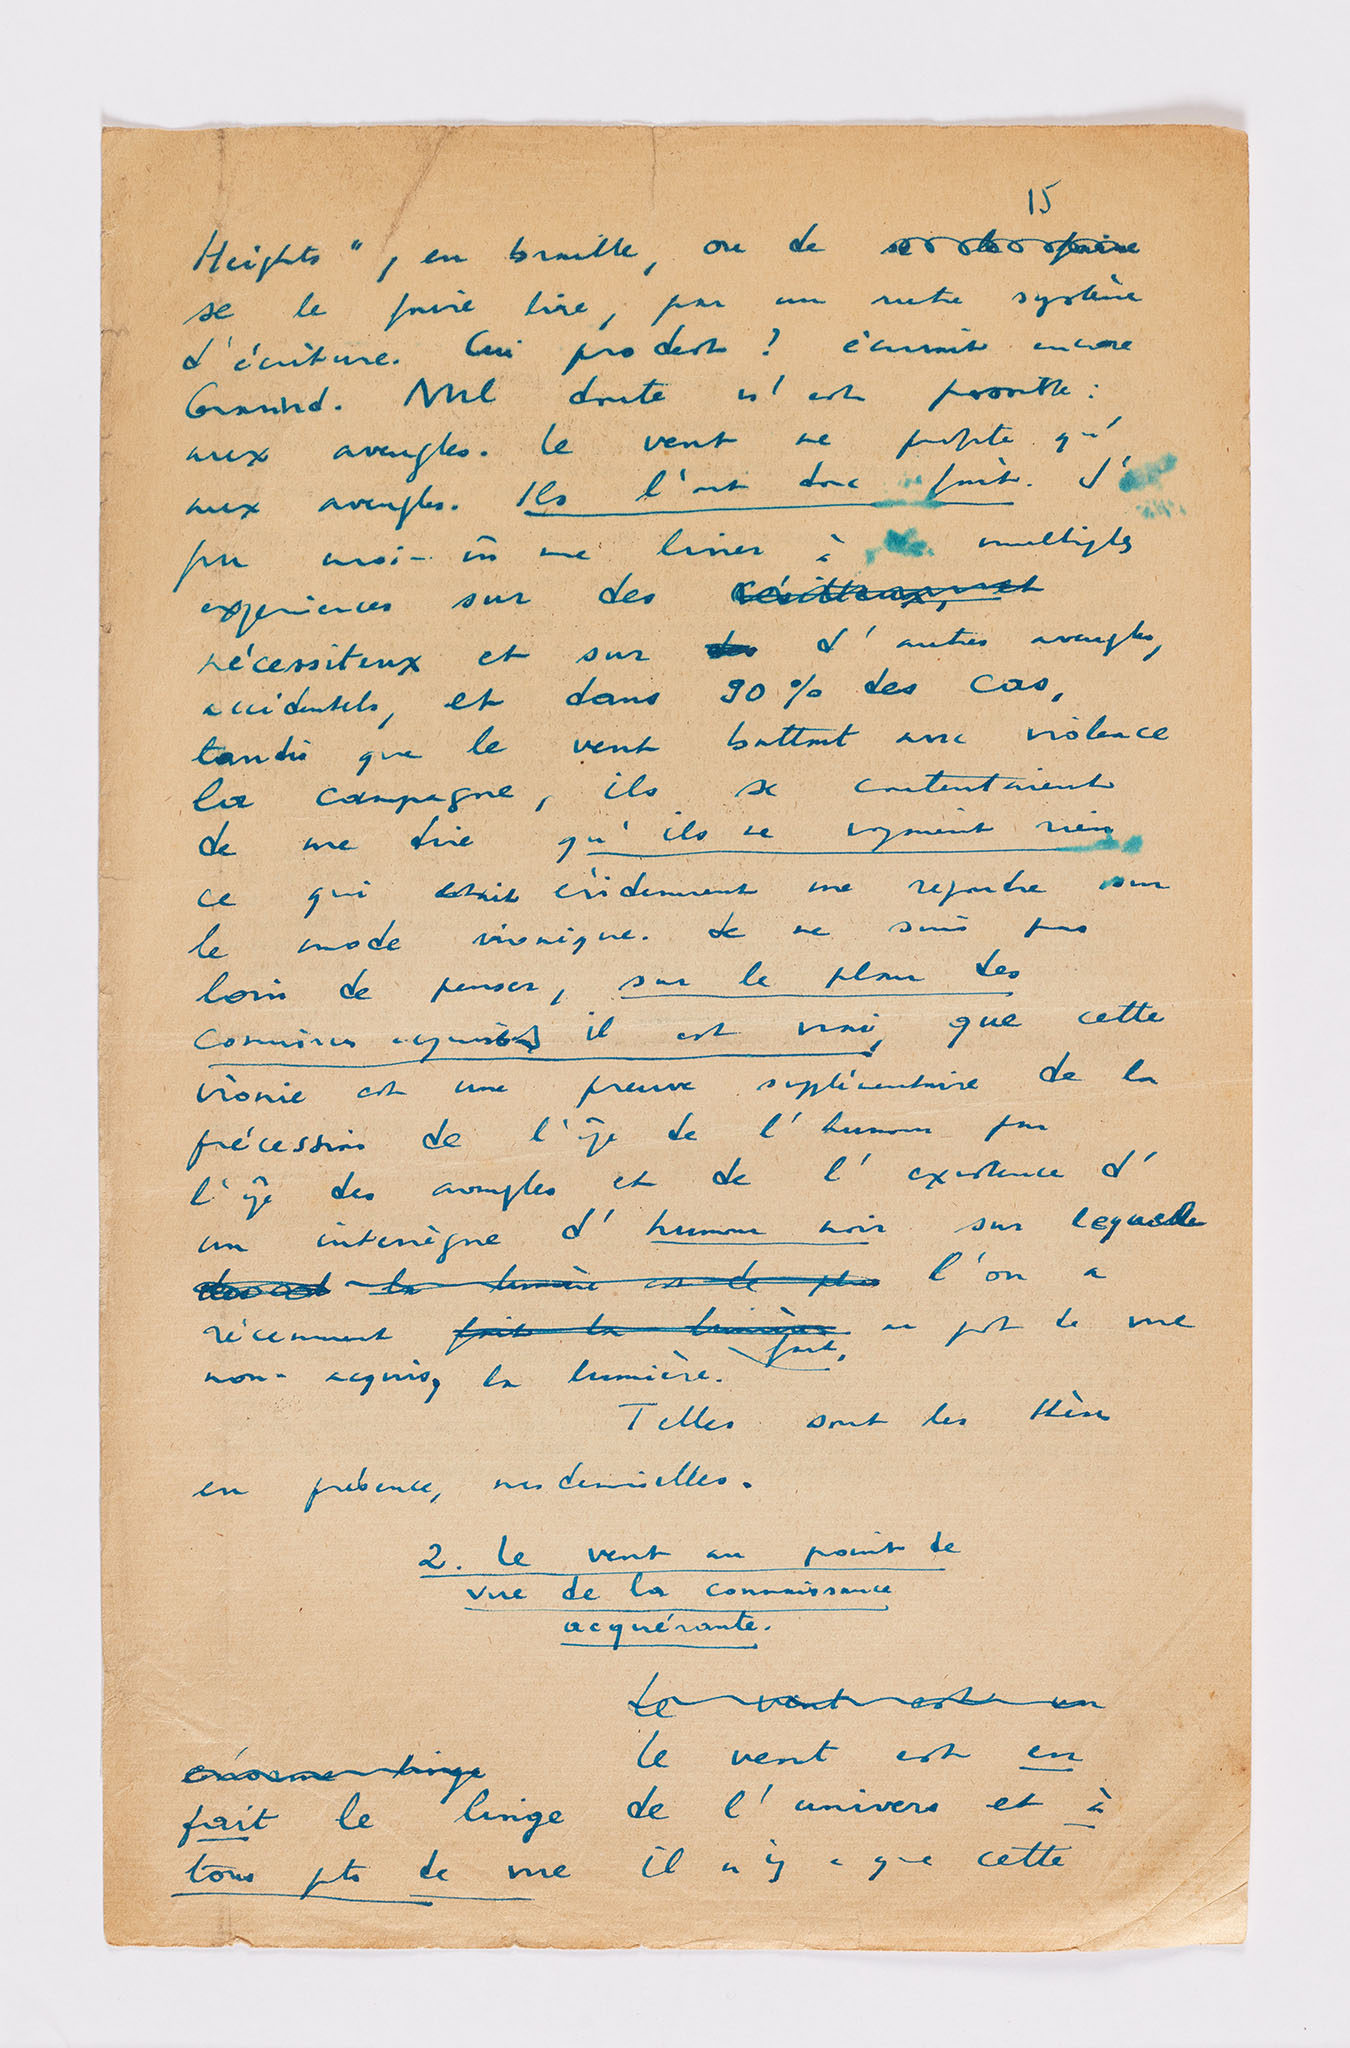 15
Heights", en braille, ou de se le faire
se le faire lire, par un autre système
d'écriture. Cui prodest ? écrivait encore
Nul doute n'est possible :
aux aveugles. Le vent ne profite qu'
aux aveugles. Ils l'ont donc fait. J'
pu moi-m me livrer à multiples
expériences sur des
nécessiteux et sur des d'autres aveugles,
accidentels, et dans 90% des cas,
tandis que le vent battait avec violence
la campagne, ils se contentaient
de me dire qu'ils ne voyaient rien
ce qui était évidemment me répondre sur
le mode ironique. Je ne suis pas
loin de penser, sur le plan des
acquises il est vrai, que cette
ironie est une preuve supplémentaire de la
précession de l'âge de l'humour par
l'âge des aveugles et de l'existence d'
un interrègne d'humour noir sur lequel
la lumière est de plus l'on a
récemment fait la lumière au pt de vue
fait,
non-acquis, la lumière.
Telles sont les thèses
en présence, mesdemoiselles.
2. Le vent au point de
vue de la connaissance
acquérante.
Le vent est un
énorme linge Le vent est en
fait le linge de l'univers et à
tous pts de vue il n'y a que cette